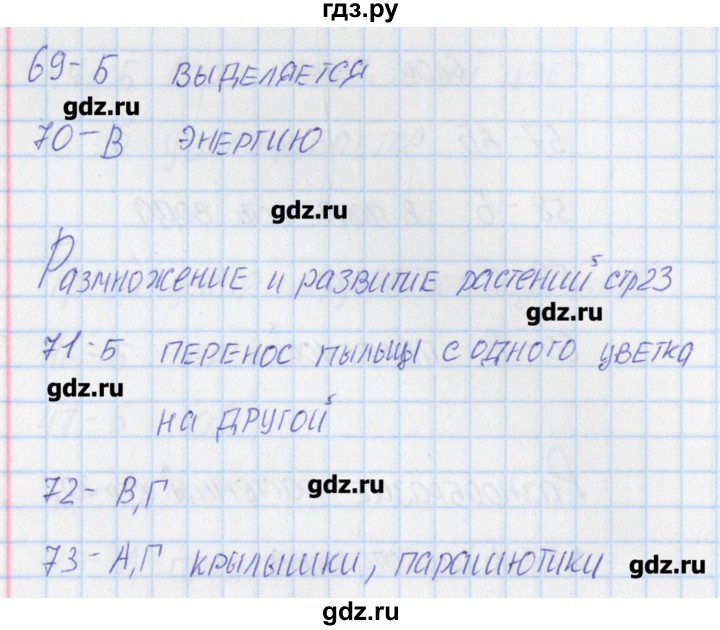 гдз.ру
69-Б ВЫДЕЛЯЕТСЯ
gdz.ru
70-В ЭНЕРГИЮ
gdz.ru
Размножение и развитие растений стр23
gdz.ru
71-Б ПЕРЕНОС ПЫЛЬЦЫ С ОДНОГО ЦВЕТКА
gdz.ru
НА ДРУГОЙ
72-В,Г gdz.ru
73-А,Г КРЫЛЫШКИ, ПАРАШЮТИКИ gdz.ru
gdz.ru